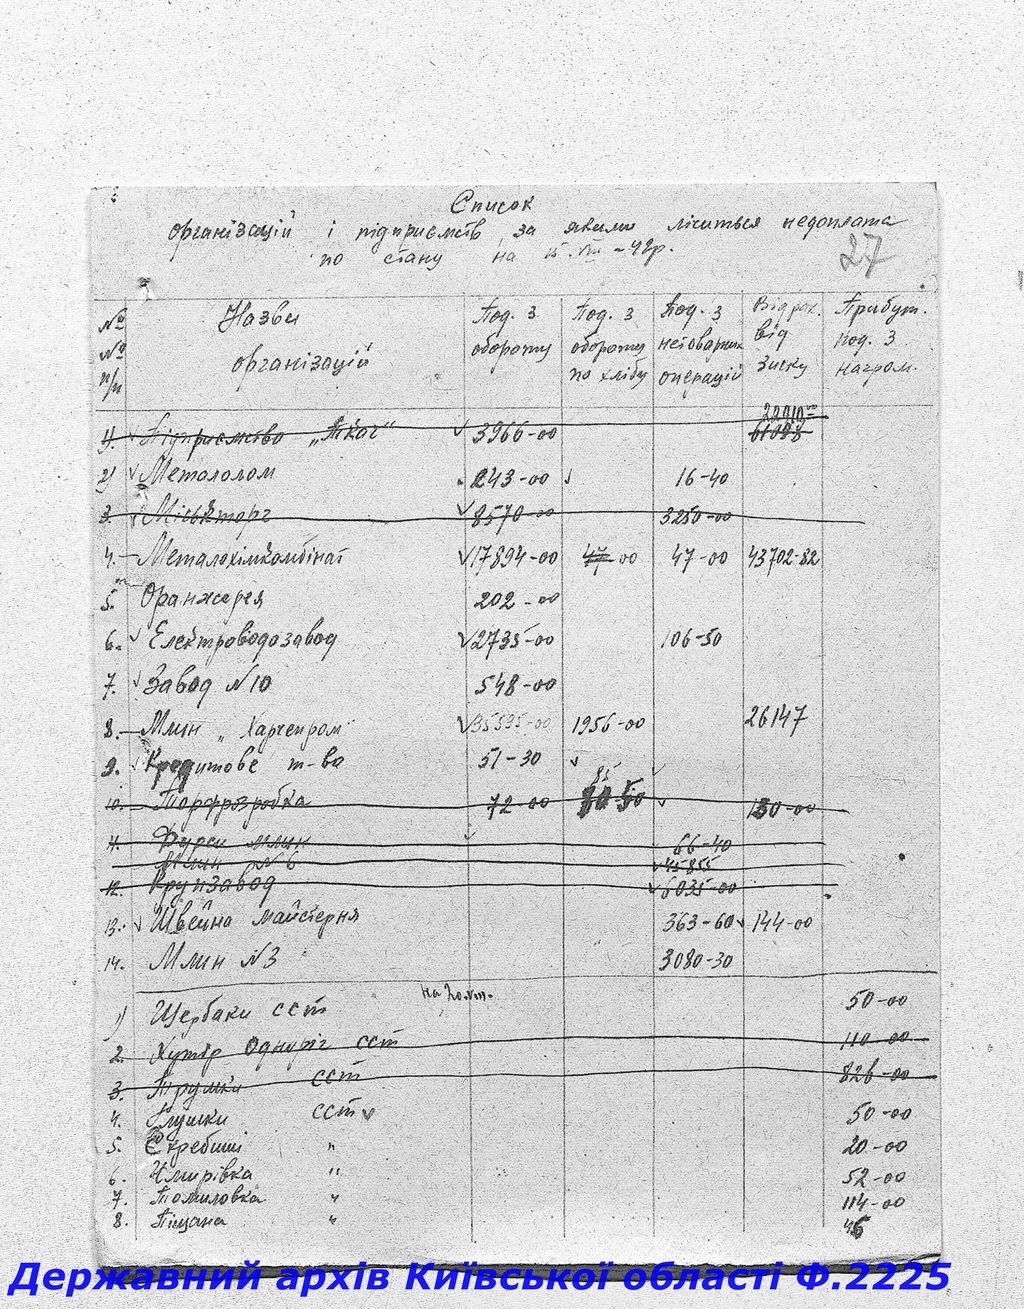 Список
організацій і підприємств за якими лічиться недоплата
по стану на 15.VIII-42р.
27
№№ п/п Назви організацій Под. з обороту Под. з обороту по хлібу Под. з нетоварних операцій Відрах. від зиску Прибут. под. з нагром.
1. Підприємство „Ткач“ 3966-00
2) Металолом 243-00 16-40
3. Міськторг 8570-00 3250-00
4. Металохімкомбінат 17894-00 47-00 47-00 43702-82
5. Оранжерея 202-00
6. Електроводозавод 2735-00 106-50
7. Завод N10 548-00
8. Млин „Харчепром“ 35595-00 1956-00 26147
9. Кредитове т-во 51-30
85
10. Торфрозробка 72-00 130-00
11. Фурси млин 66-40
Млин N 6 45855
12. Крупзавод 6035-00
13. Швейна майстерня 363-60 144-00
14. Млин N3 3080-30
1) Щербаки сст 50-00
2. Хутір Одноріг сст 110-00
3. Трумки сст 826-00
4. Глушки сст 50-00
5. Скребиші " 20-00
6. Чмирівка " 52-00
7. Томиловка " 114-00
8. Піщана " 46
Державний архів Київської області Ф.2225